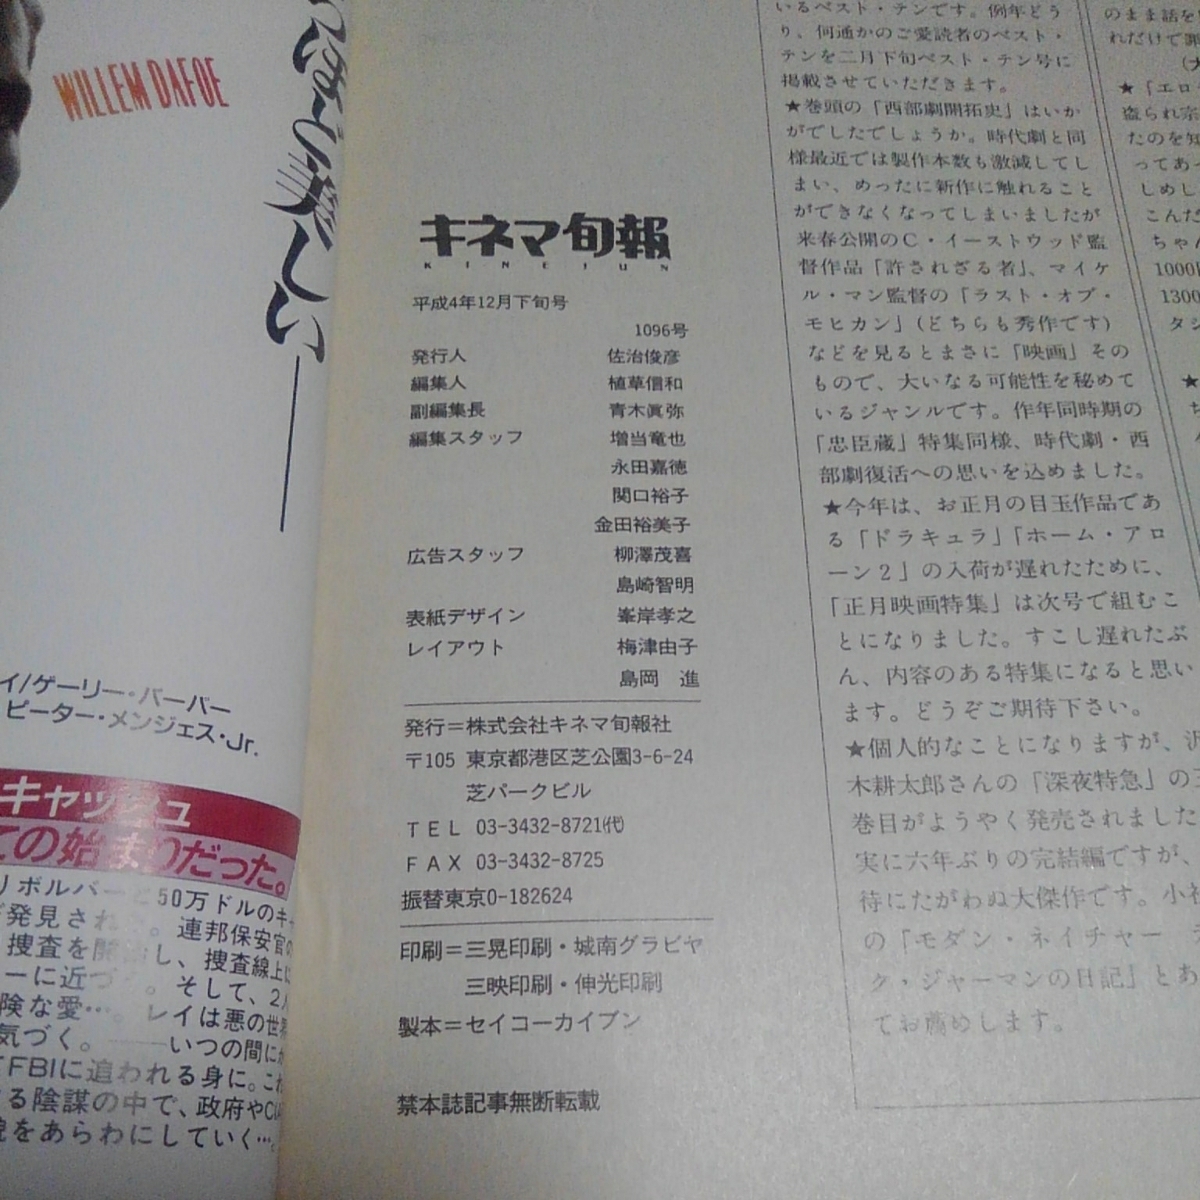 WILLEM DAFOE
ほど美しい——
イ/ゲーリー・バーバー
ピーター・メンジェス・Jr.
キャッシュ
ての始まりだった。
リボルバーと50万ドルのキャ
発見され 。連邦保安官の
捜査を開始し、捜査線上に
ーに近づ 。そして、2人
険な愛…。レイは悪の世界
気づく。——いつの間にか
FBIに追われる身に。これ
る陰謀の中で、政府やCIA
貌をあらわにしていく…。
キネマ旬報
KINEJUN
平成4年12月下旬号
1096号
発行人 佐治俊彦
編集人 植草信和
副編集長 青木眞弥
編集スタッフ 増当竜也
永田嘉徳
関口裕子
金田裕美子
広告スタッフ 柳澤茂喜
島崎智明
表紙デザイン 峯岸孝之
レイアウト 梅津由子
島岡 進
発行=株式会社キネマ旬報社
〒105 東京都港区芝公園3-6-24
芝パークビル
TEL 03-3432-8721㈹
FAX 03-3432-8725
振替東京0-182624
印刷=三晃印刷・城南グラビヤ
三映印刷・伸光印刷
製本=セイコーカイブン
禁本誌記事無断転載
いるベスト・テンです。例年どう
り、何通かのご愛読者のベスト・
テンを二月下旬ベスト・テン号に
掲載させていただきます。
★巻頭の「西部劇開拓史」はいか
がでしたでしょうか。時代劇と同
様最近では製作本数も激減してし
まい、めったに新作に触れること
ができなくなってしまいましたが
来春公開のC・イーストウッド監
督作品「許されざる者」、マイケ
ル・マン監督の「ラスト・オブ・
モヒカン」(どちらも秀作です)
などを見るとまさに「映画」その
もので、大いなる可能性を秘めて
いるジャンルです。作年同時期の
「忠臣蔵」特集同様、時代劇・西
部劇復活への思いを込めました。
★今年は、お正月の目玉作品であ
る「ドラキュラ」「ホーム・アロ
ーン2」の入荷が遅れたために、
「正月映画特集」は次号で組むこ
とになりました。すこし遅れたぶ
ん、内容のある特集になると思い
ます。どうぞご期待下さい。
★個人的なことになりますが、沢
木耕太郎さんの「深夜特急」の三
巻目がようやく発売されました
実に六年ぶりの完結編ですが、
待にたがわぬ大傑作です。小社
の「モダン・ネイチャー デ
ク・ジャーマンの日記」とあ
てお薦めします。
のまま話を
れだけで
★「エロ
盗られ宗
たのを知
ってあっ
しめし
こんだ
ちゃん
1000円
1300
タジ
★
ち